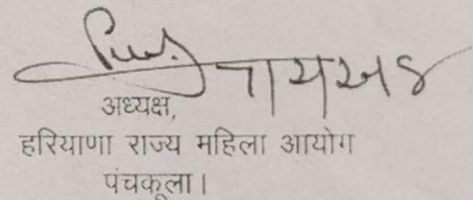 अध्यक्ष,
हरियाणा राज्य महिला आयोग
पंचकूला।